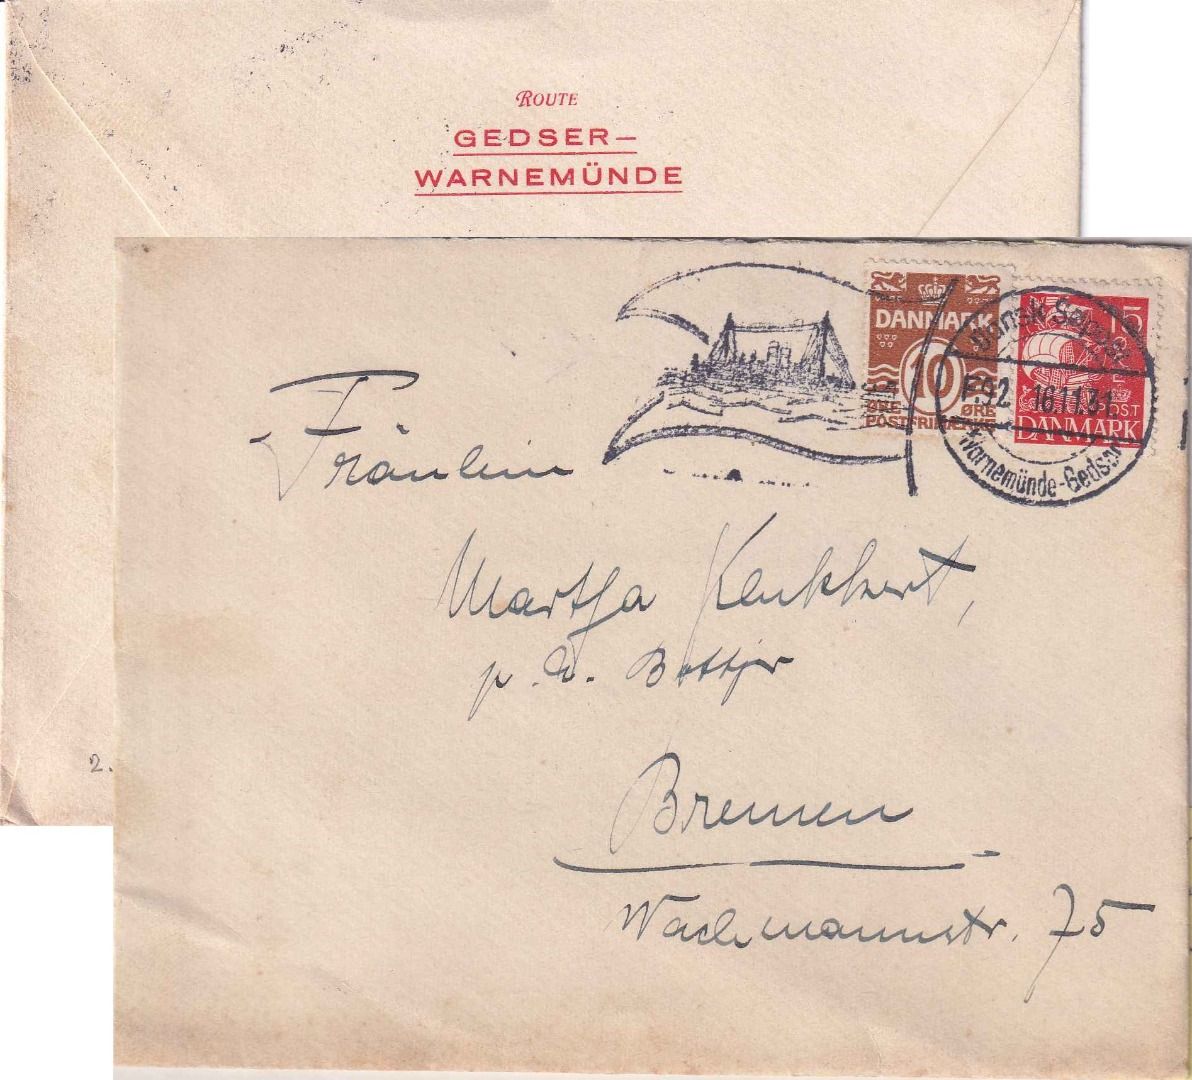 ROUTE
GEDSER–
WARNEMÜNDE
DANMARK
10
ØRE ØRE
POSTFRIM
15
POST
DANMARK
Dansk Søpost
F.92 16.11.31
Warnemünde-Gedser
Fräulein
Martha
p. a. Bottjer
Bremen
Wachmannstr. 75
2.